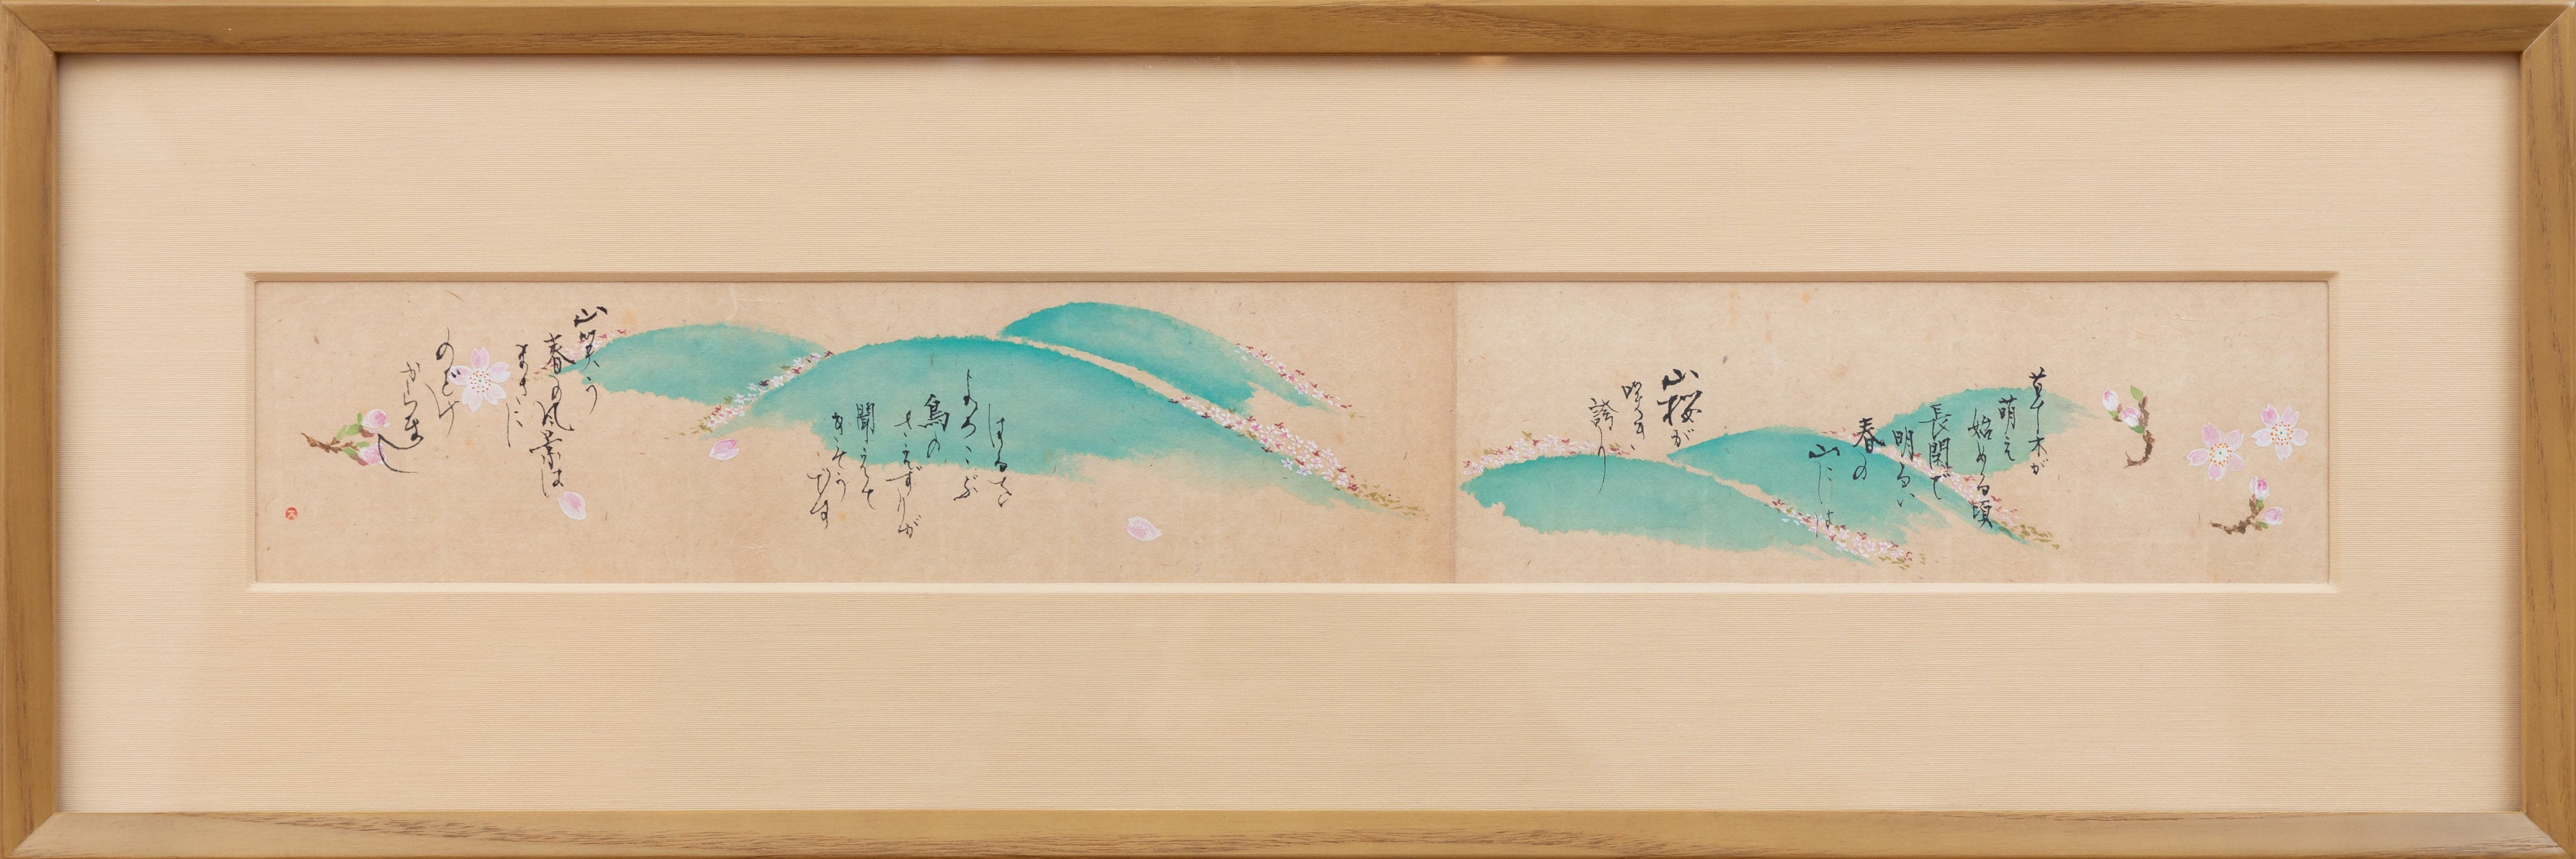 草木が
萌え
始める頃
長閑で
明るい
春の
山には
山桜が
咲き
誇り
はるを
よろこぶ
鳥の
さえずりが
聞こえて
きそう
です
山笑う
春の風景は
まさに
のどけ
からまし